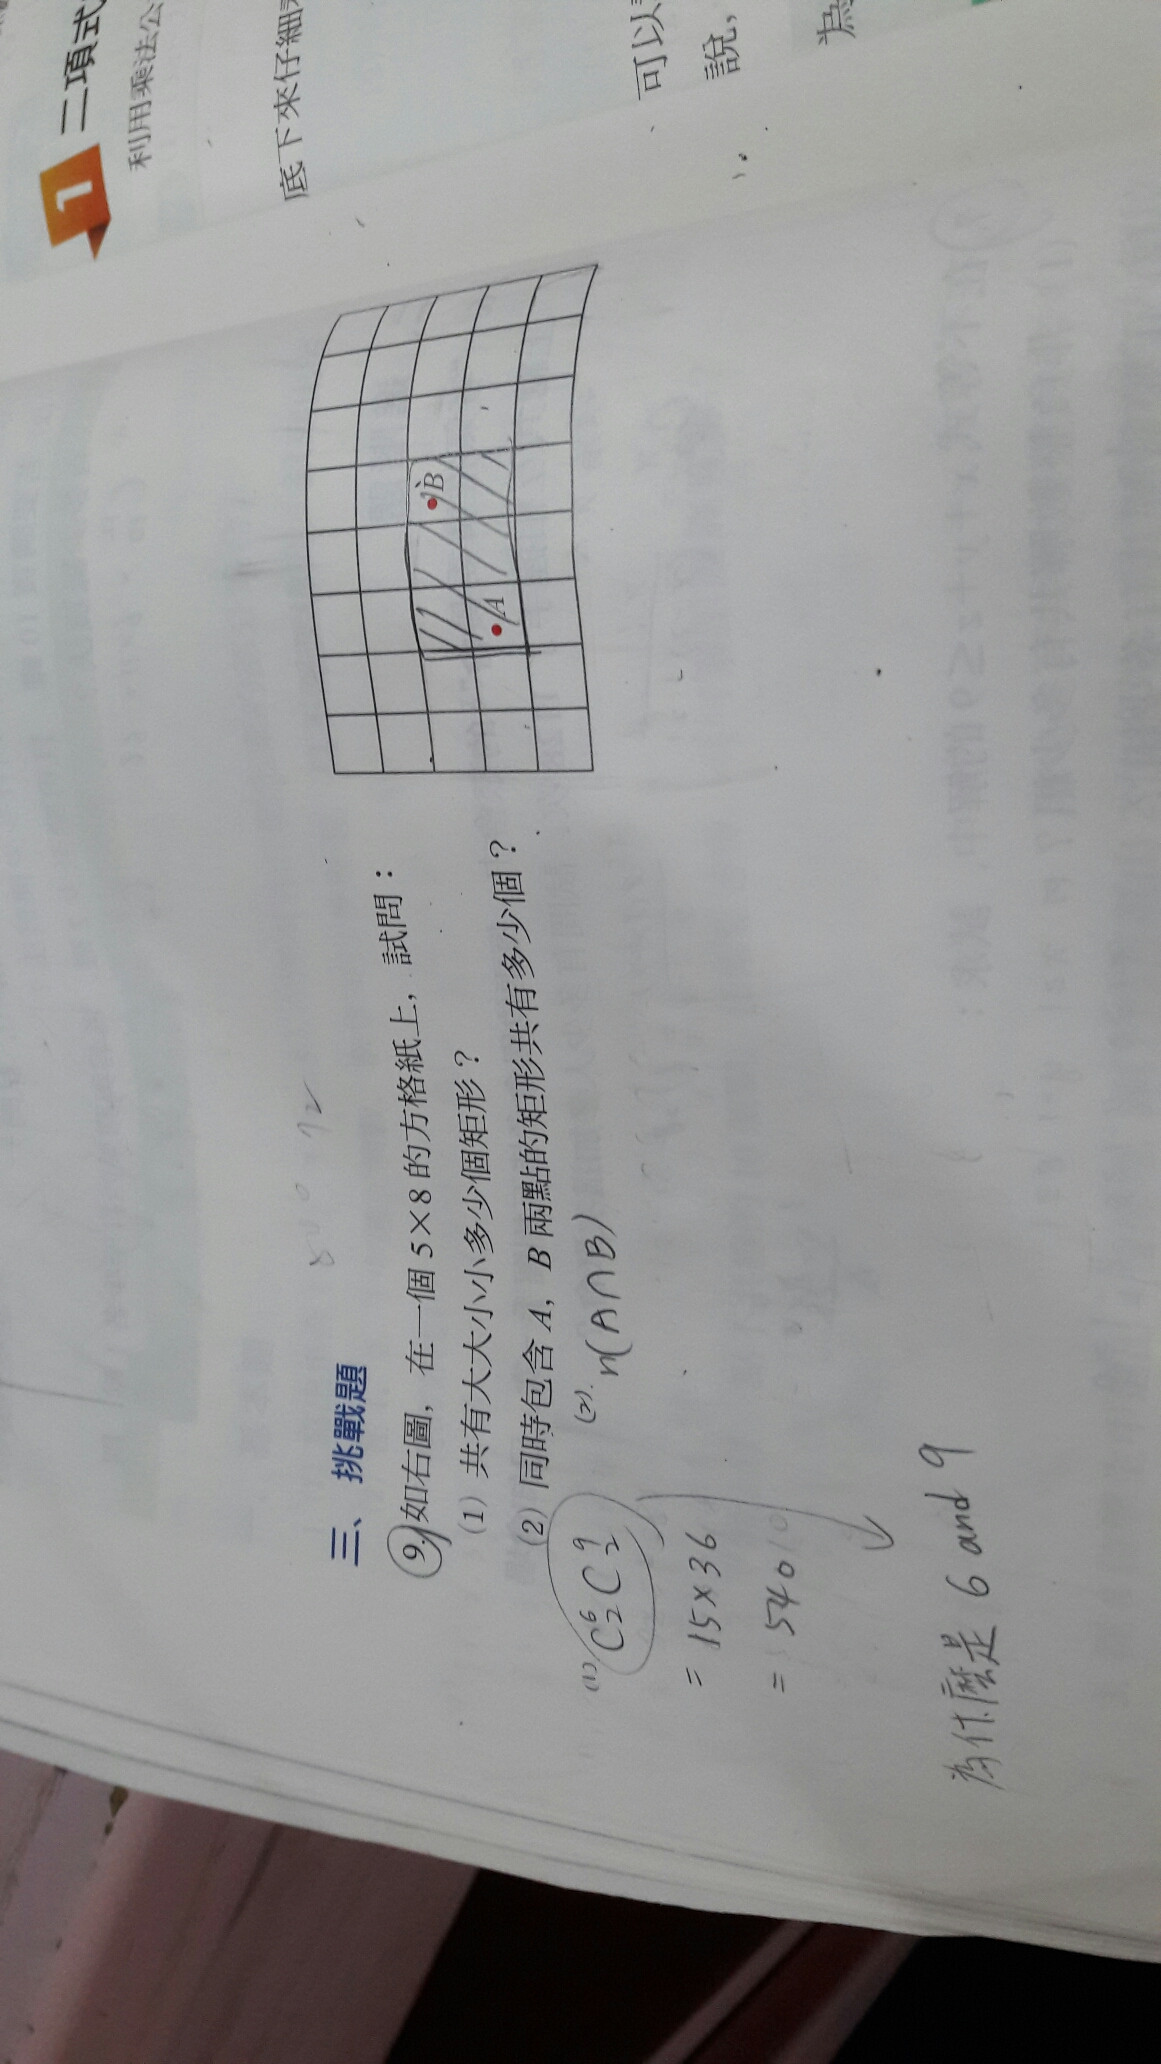 1 二項式
利用乘法公
底下來仔細
可以
說,
為
三、挑戰題
9. 如右圖, 在一個 5×8 的方格紙上, 試問:
(1) 共有大大小小多少個矩形?
(2) 同時包含 A, B 兩點的矩形共有多少個?
A
B
(1) C⁶₂ C⁹₂
= 15×36
= 540
(2). n(A∩B)
為什麼是 6 and 9